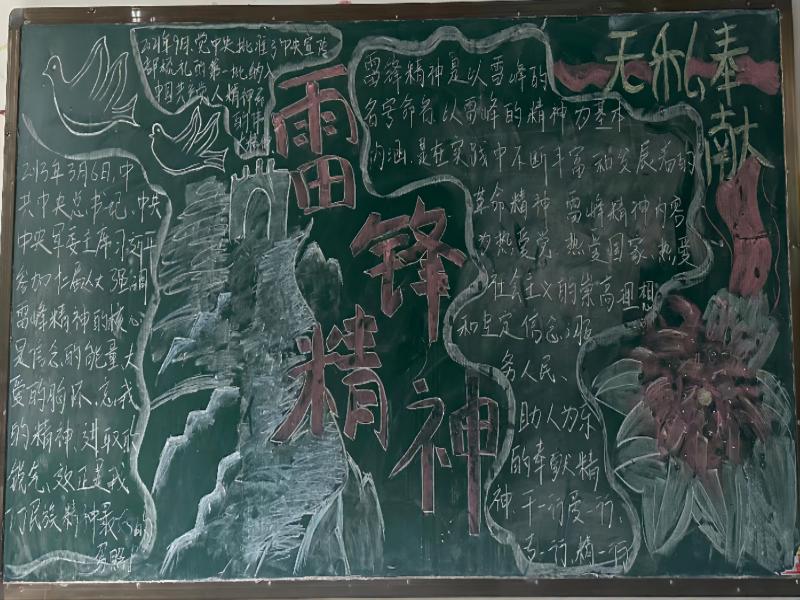 2021年9月,党中央批准了中央宣传
部梳理的第一批纳入
中国共产党人精神谱
系的伟
大精神
雷
锋
精
神
无私奉
献
2013年3月6日,中
共中央总书记、中央
中央军委主席习近平
参加十二届人大强调
雷峰精神的核心
是信念的能量大
爱的胸怀、忘我
的精神、进取的
锐气,这正是我
们民族精神最好的
写照
雷锋精神是以雷峰的
名字命名、以雷峰的精神为基本
内涵、是在实践中不断丰富和发展着的
革命精神 雷峰精神内容
为热爱党、热爱国家、热爱
社会主义的崇高理想
和坚定信念;服
务人民、
助人为乐
的奉献精
神 干一行爱一行、
专一行、精一行